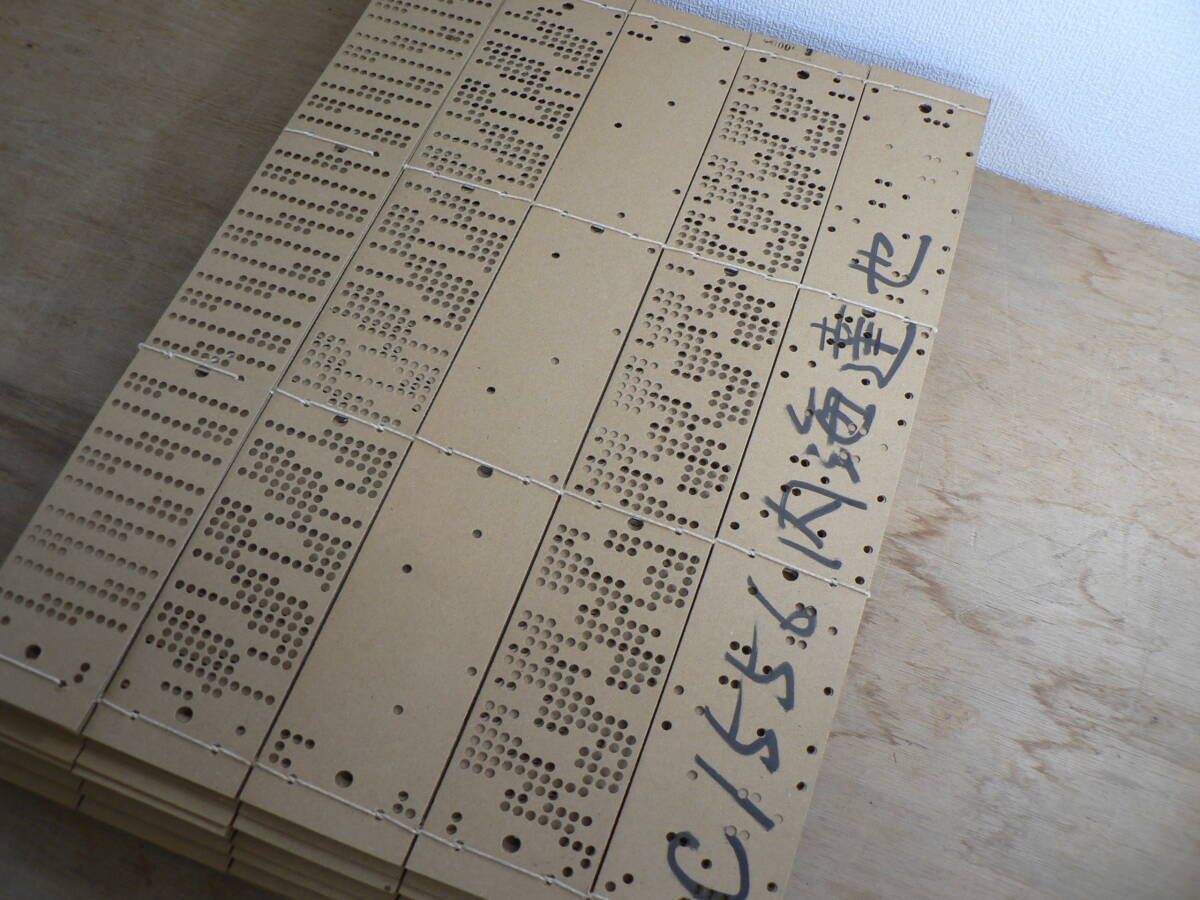 C15561内海達也